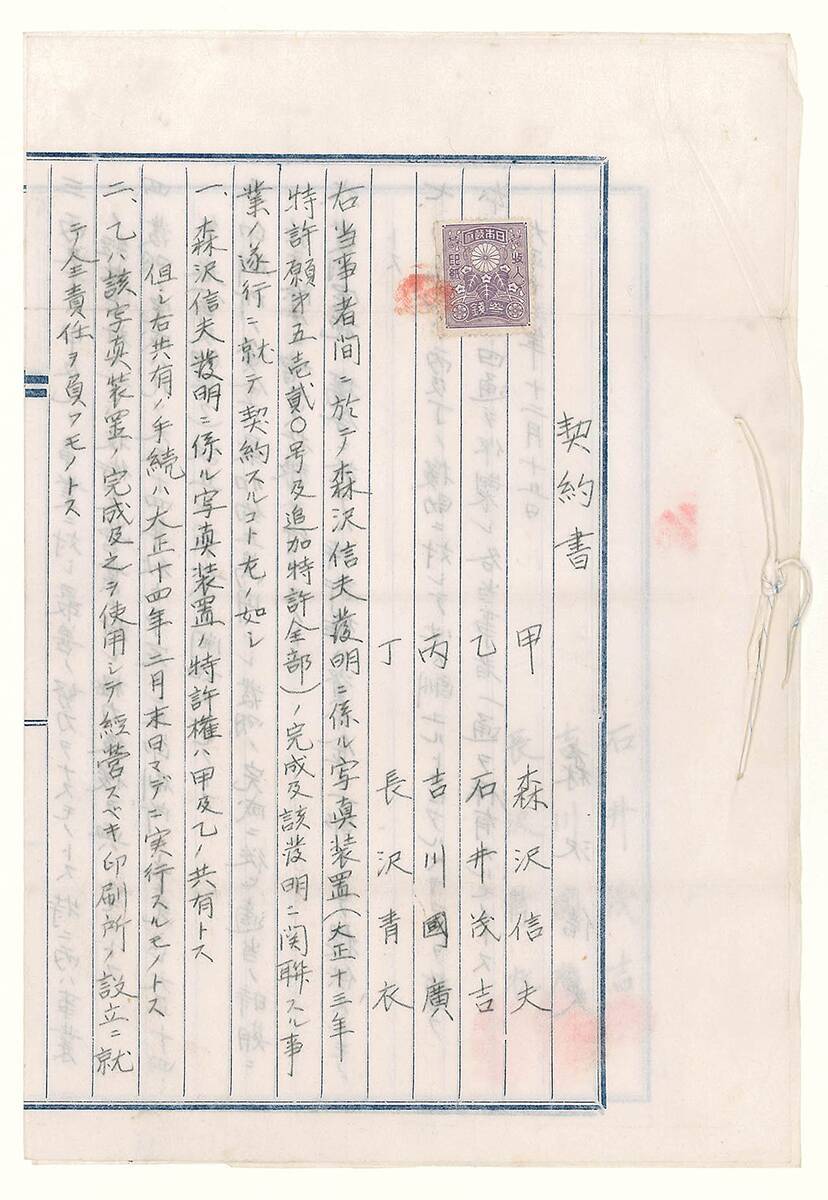 契約書
甲 森沢信夫
乙 石井茂吉
丙 吉川國廣
丁 長沢青衣
右当事者間ニ於テ森沢信夫發明ニ係ル写真装置(大正十三年
特許願第五壱貳〇号及追加特許全部)ノ完成及該發明ニ関聯スル事
業ノ遂行ニ就テ契約スルコト左ノ如シ
一、森沢信夫發明ニ係ル写真装置ノ特許権ハ甲及乙ノ共有トス
但シ右共有ノ手続ハ大正十四年二月末日マデニ実行スルモノトス
二、乙ハ該写真装置ノ完成及之ヲ使用シテ経営スベキ印刷所ノ設立ニ就
テ全責任ヲ負フモノトス
日本政府
収入
印紙
参銭